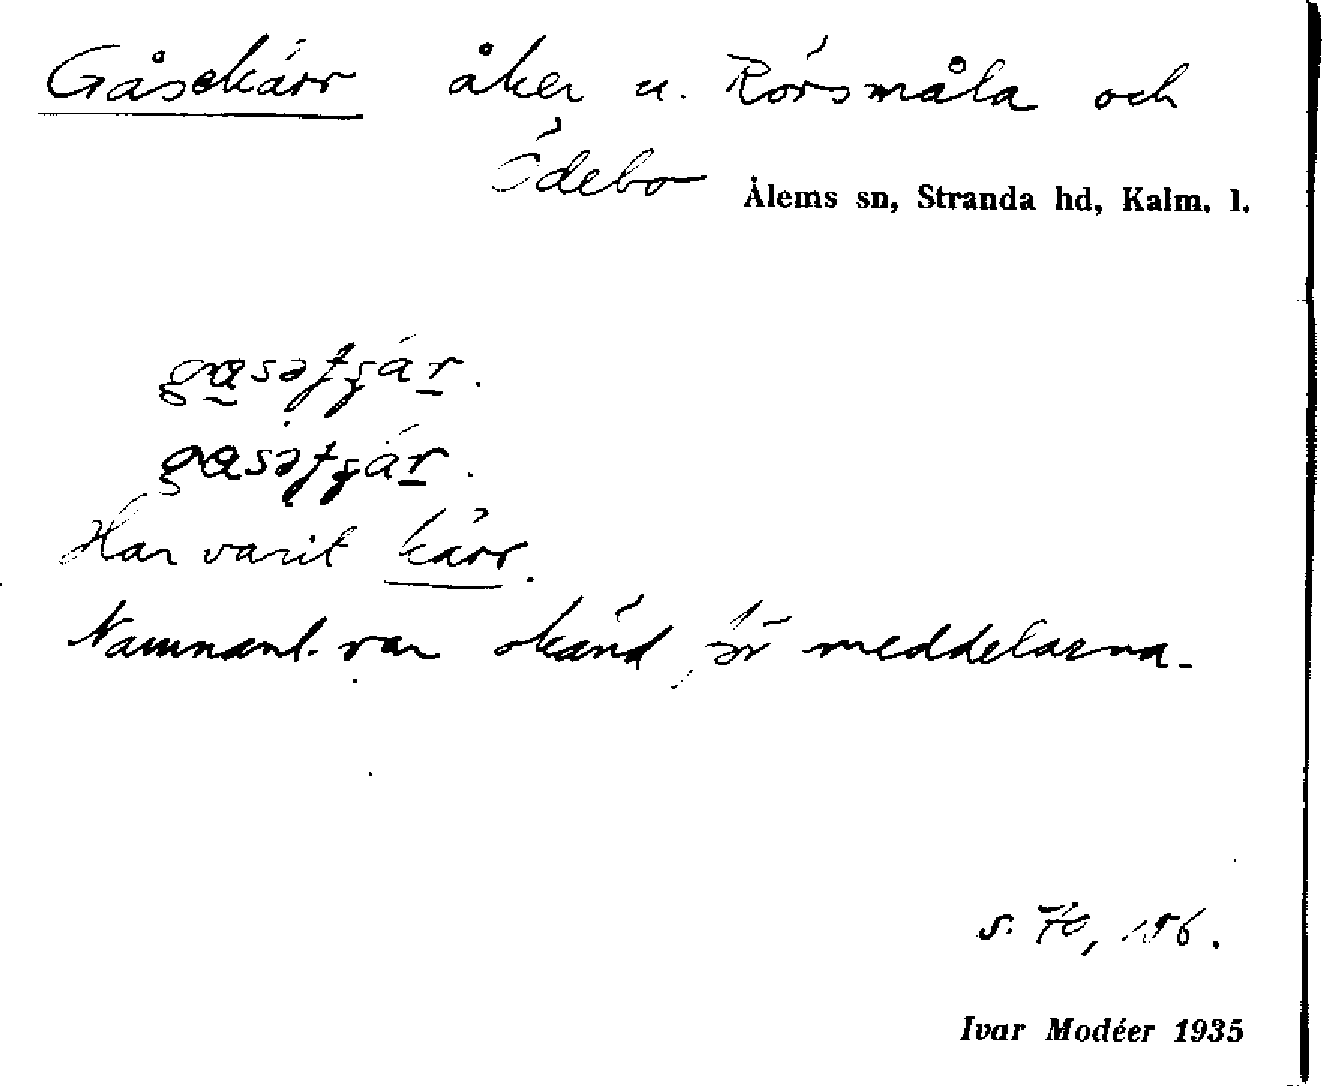 Gåsekärr åker u. Rörsmåla och
Ödebo Ålems sn, Stranda hd, Kalm. l.
Har varit kärr.
Namnanl. var okänd för meddelarna.
s. 70, 196.
Ivar Modéer 1935